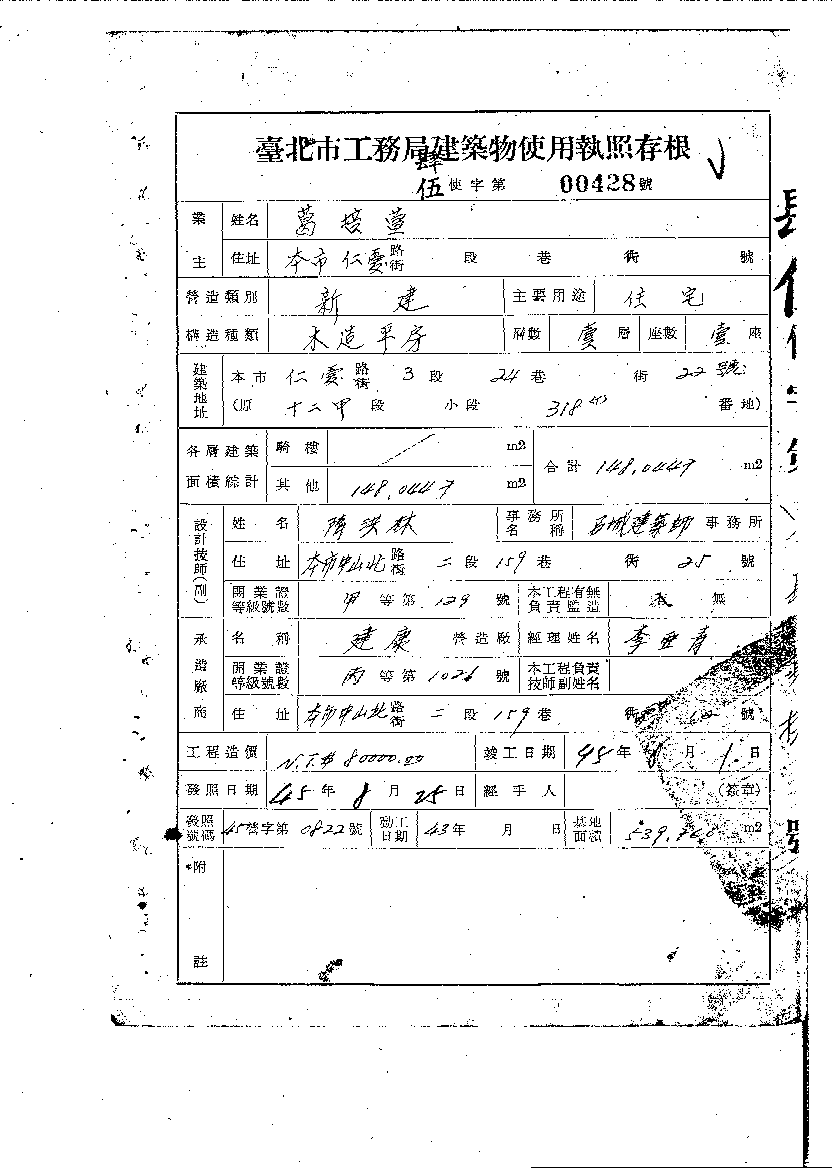 臺北市工務局建築物使用執照存根
肆
伍 使字第 00428 號
業主 姓名 葛培萱
住址 本市仁愛路街 段 巷 街 號
營造類別 新建 主要用途 住宅
構造種類 木造平房 層數 壹層 座數 壹座
建築地址 本市仁愛路街 3段 24巷 街 22號
(原 十二甲 段 小段 318 番地)
各層建築面積綜計 騎樓 m2 合計 148.0447 m2
其他 148.0447 m2
設計技師(副) 姓名 洪林 事務所名稱 建築師事務所
住址 本市中山北路街 二段 159巷 街 25號
開業證等級號數 甲等第 129 號 本工程有無負責監造 無
承造廠商 名稱 建康 營造廠 經理姓名 李
開業證等級號數 丙等第 1026 號 本工程負責技師副姓名
住址 本市中山北路街 二段 159巷 街 號
工程造價 N.T.$ 80000.00 竣工日期 45年 8月 1日
發照日期 45年 8月 25日 經手人 (簽章)
發照號碼 45營字第 0822 號 動工日期 43年 月 日 基地面積 m2
附註